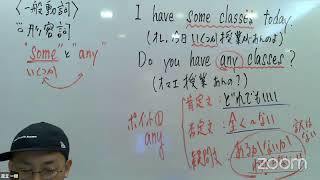 〈一般動詞〉
"some"と"any"
いくつか
I have some classes today.
(オレ、今日いくつか授業があんのよ)
Do you have any classes?
(オマエ授業あんの?)
ポイント①
any
肯定文:どれでもいい
否定文:全く〜ない
疑問文:
zoom